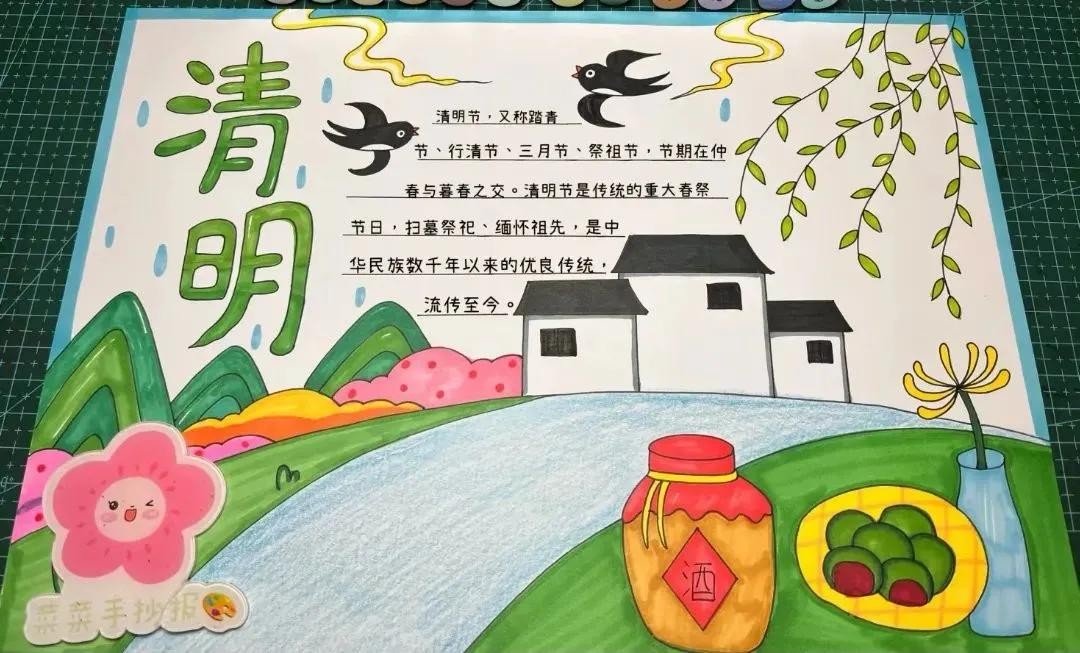 清明
清明节，又称踏青
节、行清节、三月节、祭祖节，节期在仲
春与暮春之交。清明节是传统的重大春祭
节日，扫墓祭祀、缅怀祖先，是中
华民族数千年以来的优良传统，
流传至今。
酒
菜菜手抄报